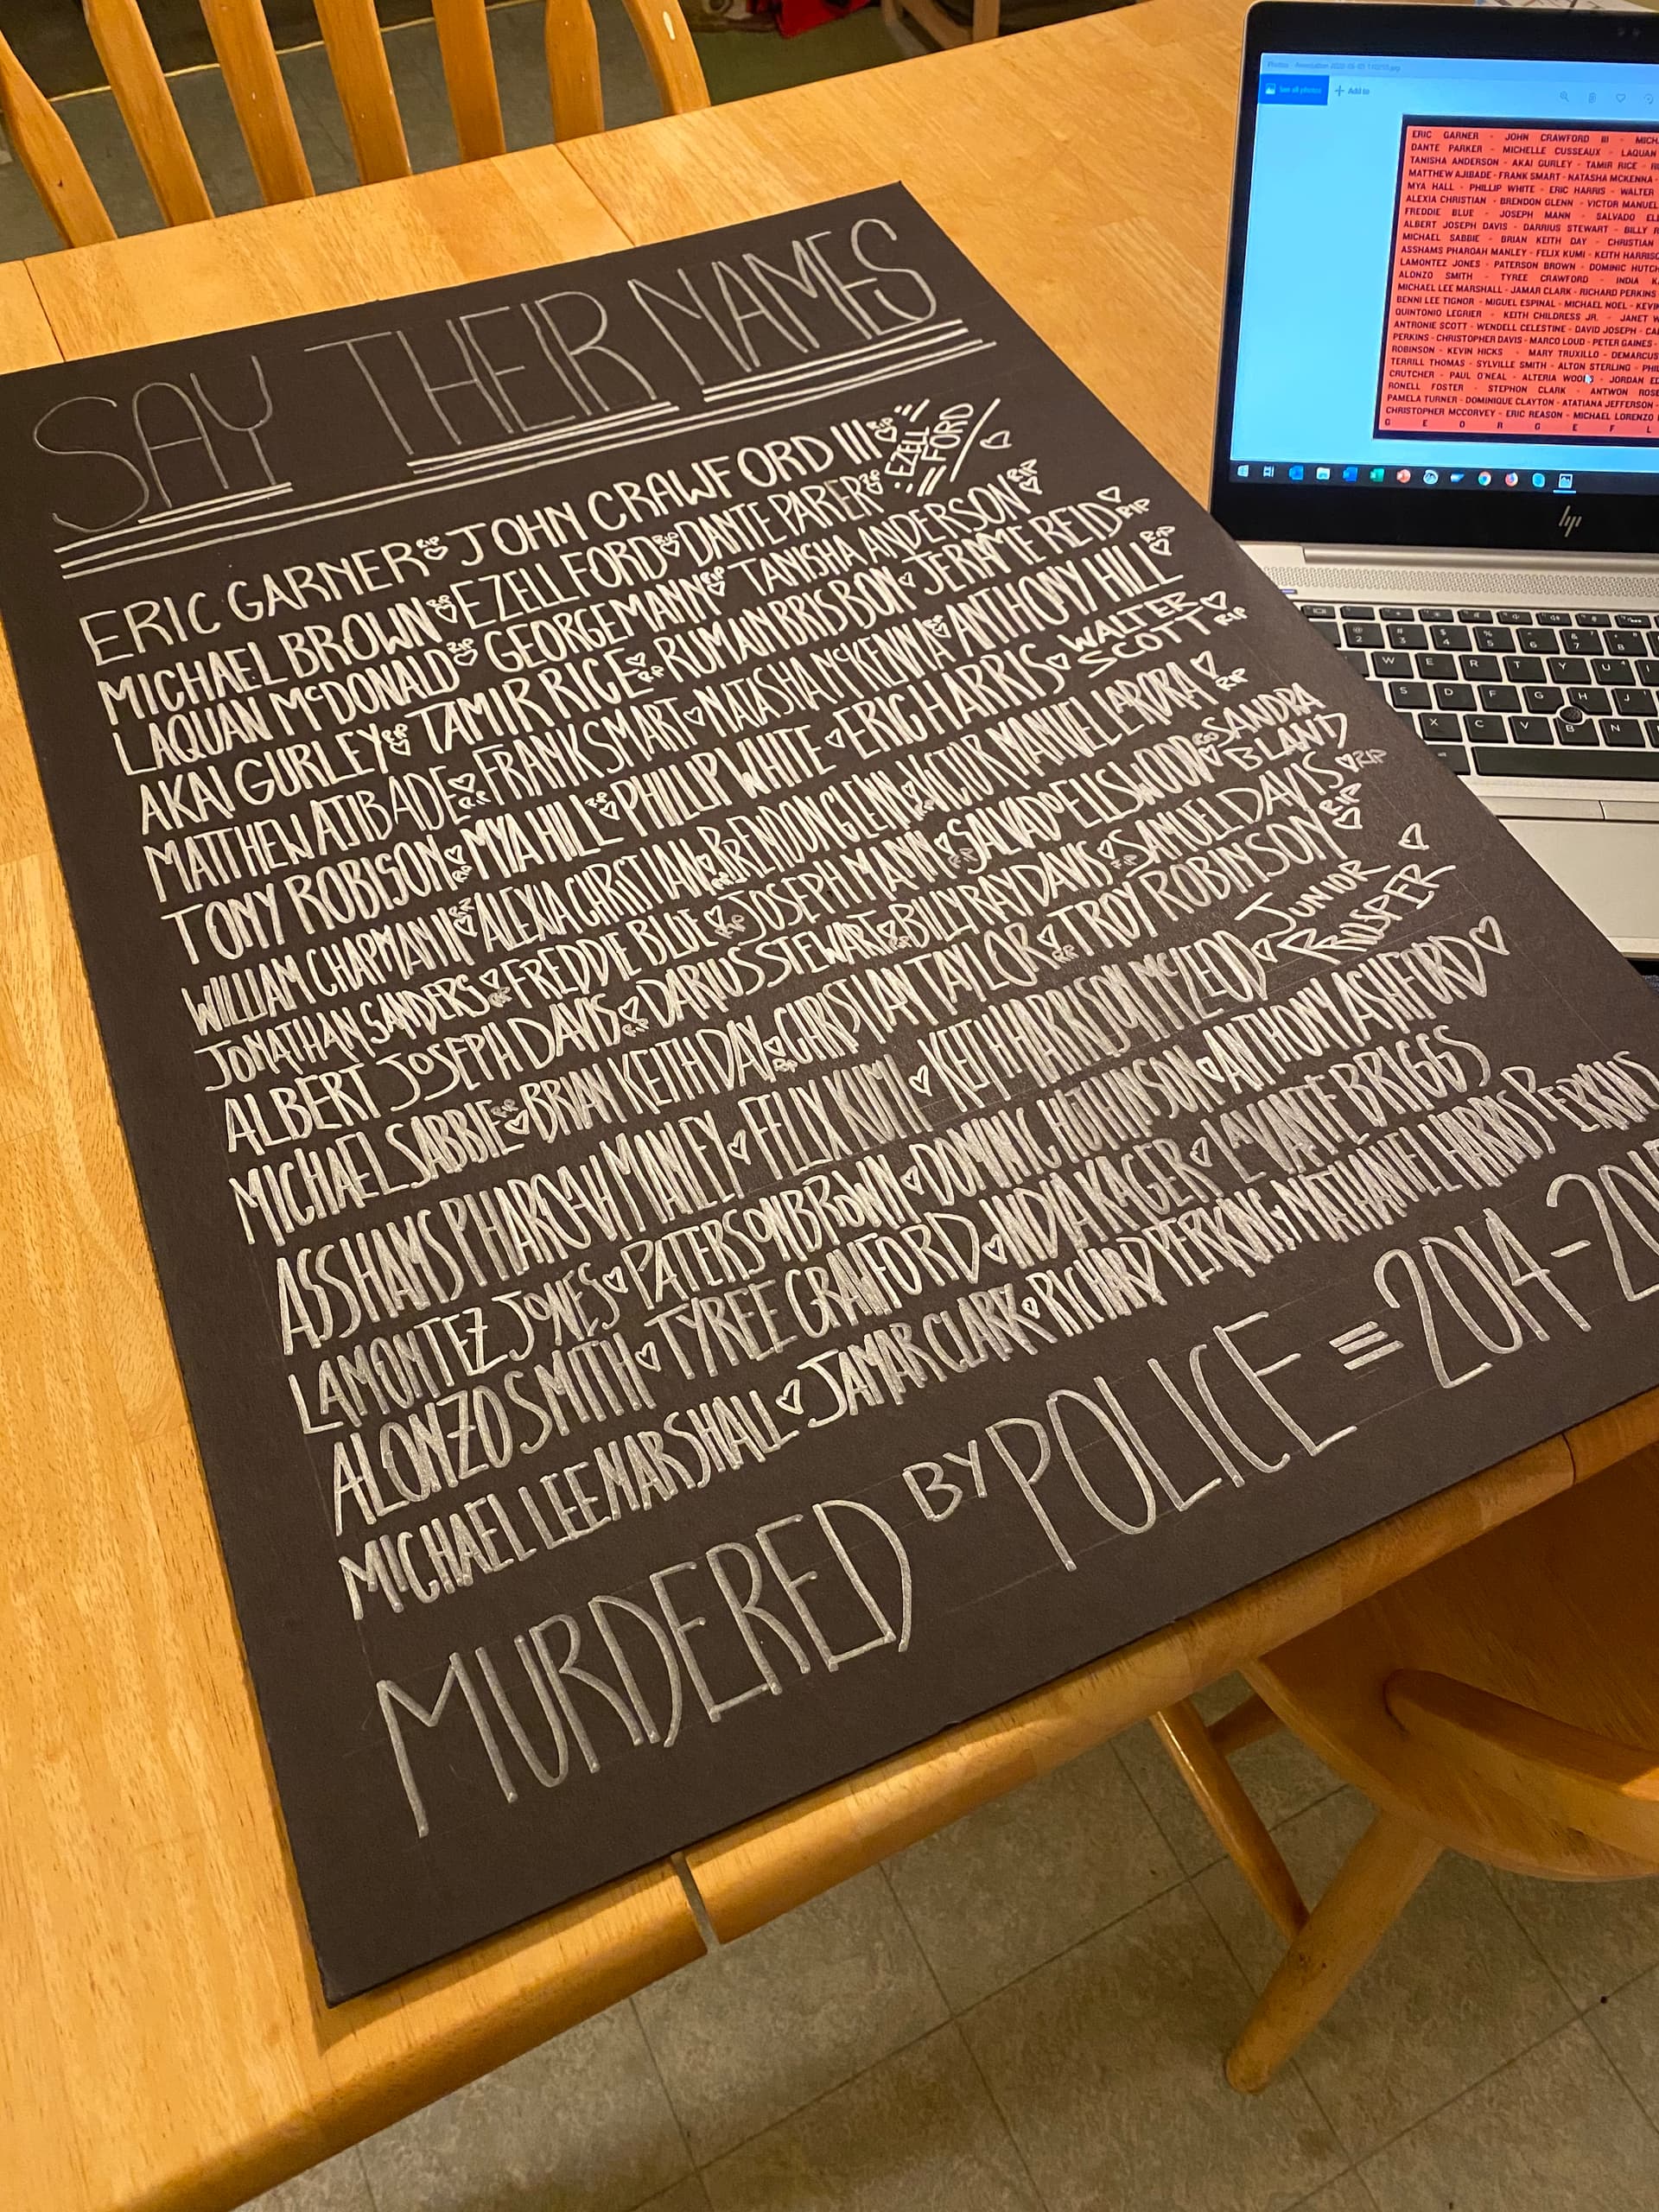 SAY THEIR NAMES
ERIC GARNER RIP JOHN CRAWFORD III RIP
EZELL FORD
MICHAEL BROWN RIP EZELL FORD RIP DANTE PARER RIP
LAQUAN McDONALD RIP GEORGE MANN RIP TANISHA ANDERSON RIP
AKAI GURLEY RIP TAMIR RICE RIP RUMAIN BRISBON JERAME REID RIP
MATTHEW AJIBADE RIP FRANK SMART NATASHA McKENNA RIP ANTHONY HILL RIP
TONY ROBISON RIP MYA HILL RIP PHILLIP WHITE ERIC HARRIS WALTER SCOTT RIP
WILLIAM CHAPMAN II RIP ALEXIA CHRISTIAN RIP BRENDON GLENN RIP VICTOR MANUEL LARORA RIP
JONATHAN SANDERS RIP FREDDIE BLUE RIP JOSEPH MANN RIP SALVADO ELLSWOOD SANDRA BLAND RIP
ALBERT JOSEPH DAVIS RIP DARIUS STEWART RIP BILLY RAY DAVIS RIP SAMUEL DAVIS RIP
MICHAEL SABBIE RIP BRIAN KEITH DAY RIP CHRISTIAN TAYLOR RIP TROY ROBINSON
ASSHAMS PHAROAH MANLEY FELIX KUMI KEITH HARRISON McLEOD JUNIOR PROSPER
LAMONTEZ JONES PATERSON BROWN DOMINIC HUTHINSON ANTHONY ASHFORD
ALONZO SMITH TYREE CRAWFORD INDIA KAGER LA'VANTE BRIGGS
MICHAEL LEE MARSHALL JAMAR CLARK RICHARD PERKINS NATHANIEL HARRIS PERKINS
MURDERED BY POLICE = 2014-201
See all photos + Add to
ERIC GARNER - JOHN CRAWFORD III -
DANTE PARKER - MICHELLE CUSSEAUX - LAQUAN
TANISHA ANDERSON - AKAI GURLEY - TAMIR RICE -
MATTHEW AJIBADE - FRANK SMART - NATASHA MCKENNA -
MYA HALL - PHILLIP WHITE - ERIC HARRIS - WALTER
ALEXIA CHRISTIAN - BRENDON GLENN - VICTOR MANUEL
FREDDIE BLUE - JOSEPH MANN - SALVADO
ALBERT JOSEPH DAVIS - DARRIUS STEWART - BILLY
MICHAEL SABBIE - BRIAN KEITH DAY - CHRISTIAN
ASSHAMS PHAROAH MANLEY - FELIX KUMI - KEITH
LAMONTEZ JONES - PATERSON BROWN - DOMINIC
ALONZO SMITH - TYREE CRAWFORD - INDIA
MICHAEL LEE MARSHALL - JAMAR CLARK - RICHARD PERKINS
BENNI LEE TIGNOR - MIGUEL ESPINAL - MICHAEL NOEL -
QUINTONIO LEGRIER - KEITH CHILDRESS JR. - JANET
ANTRONIE SCOTT - WENDELL CELESTINE - DAVID JOSEPH -
PERKINS - CHRISTOPHER DAVIS - MARCO LOUD - PETER GAINES -
ROBINSON - KEVIN HICKS - MARY TRUXILLO -
TERRILL THOMAS - SYLVILLE SMITH - ALTON STERLING -
CRUTCHER - PAUL O'NEAL - ALTERIA - JORDAN
RONELL FOSTER - STEPHON CLARK - ANTWON
PAMELA TURNER - DOMINIQUE CLAYTON - ATATIANA JEFFERSON -
CHRISTOPHER MCCORVEY - ERIC REASON - MICHAEL LORENZO
G E O R G E F L
hp